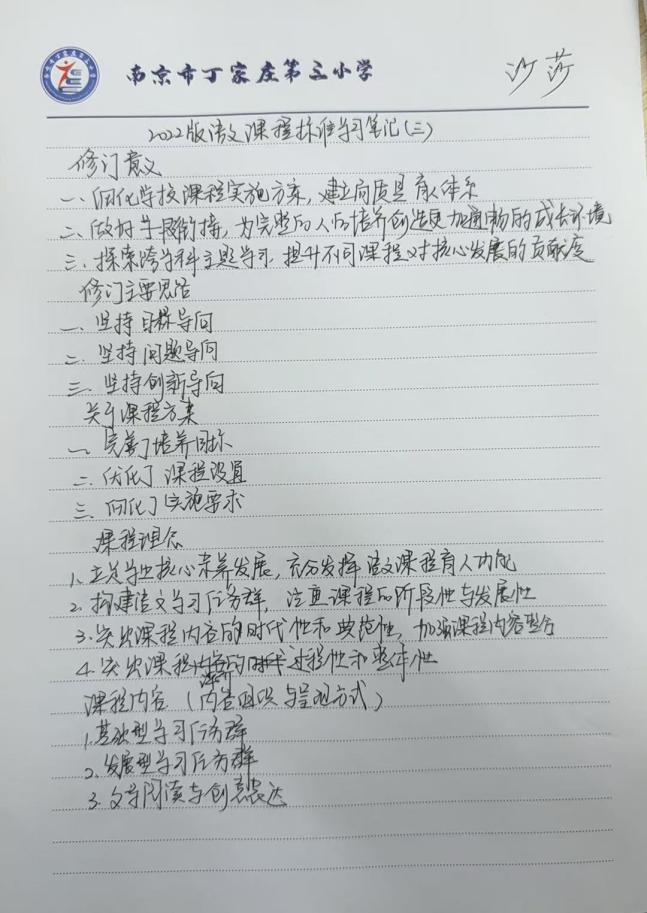 南京市丁家庄第三小学
沙莎
2022版语文课程标准学习笔记(三)
修订意义
一、细化学校课程实施方案，建立高质量育人体系
二、做好学段衔接，为完整的人的培养创造更加通畅的成长环境
三、探索跨学科主题学习，提升不同课程对核心发展的贡献度
修订主要思路
一、坚持目标导向
二、坚持问题导向
三、坚持创新导向
关于课程方案
一、完善了培养目标
二、优化了课程设置
三、细化了实施要求
课程理念
1.立足学生核心素养发展，充分发挥语文课程育人功能
2.构建语文学习任务群，注重课程的阶段性与发展性
3.突出课程内容的时代性和典范性，加强课程内容整合
4.突出课程内容的时代过程性和整体性
评价
课程内容（内容组织与呈现方式）
1.基础型学习任务群
2.发展型学习任务群
3.文学阅读与创意表达